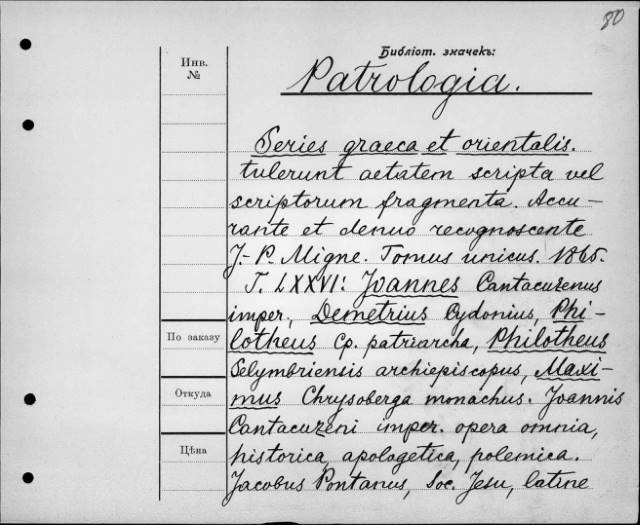 80
Библіот. значекъ:
Инв.
№
Patrologia.
Series graeca et orientalis.
tulerunt aetatem scripta vel
scriptorum fragmenta. Accu-
rante et denuo recognoscente
J.-P. Migne. Tomus unicus. 1865.
T. LXXVI: Joannes Cantacuzenus
imper., Demetrius Cydonius, Phi-
lotheus Cp. patriarcha, Philotheus
По заказу
Selymbriensis archiepiscopus, Maxi-
Откуда
mus Chrysoberga monachus. Joannis
Cantacuzeni imper. opera omnia,
Цѣна
historica, apologetica, polemica.
Jacobus Pontanus, Soc. Jesu, latine